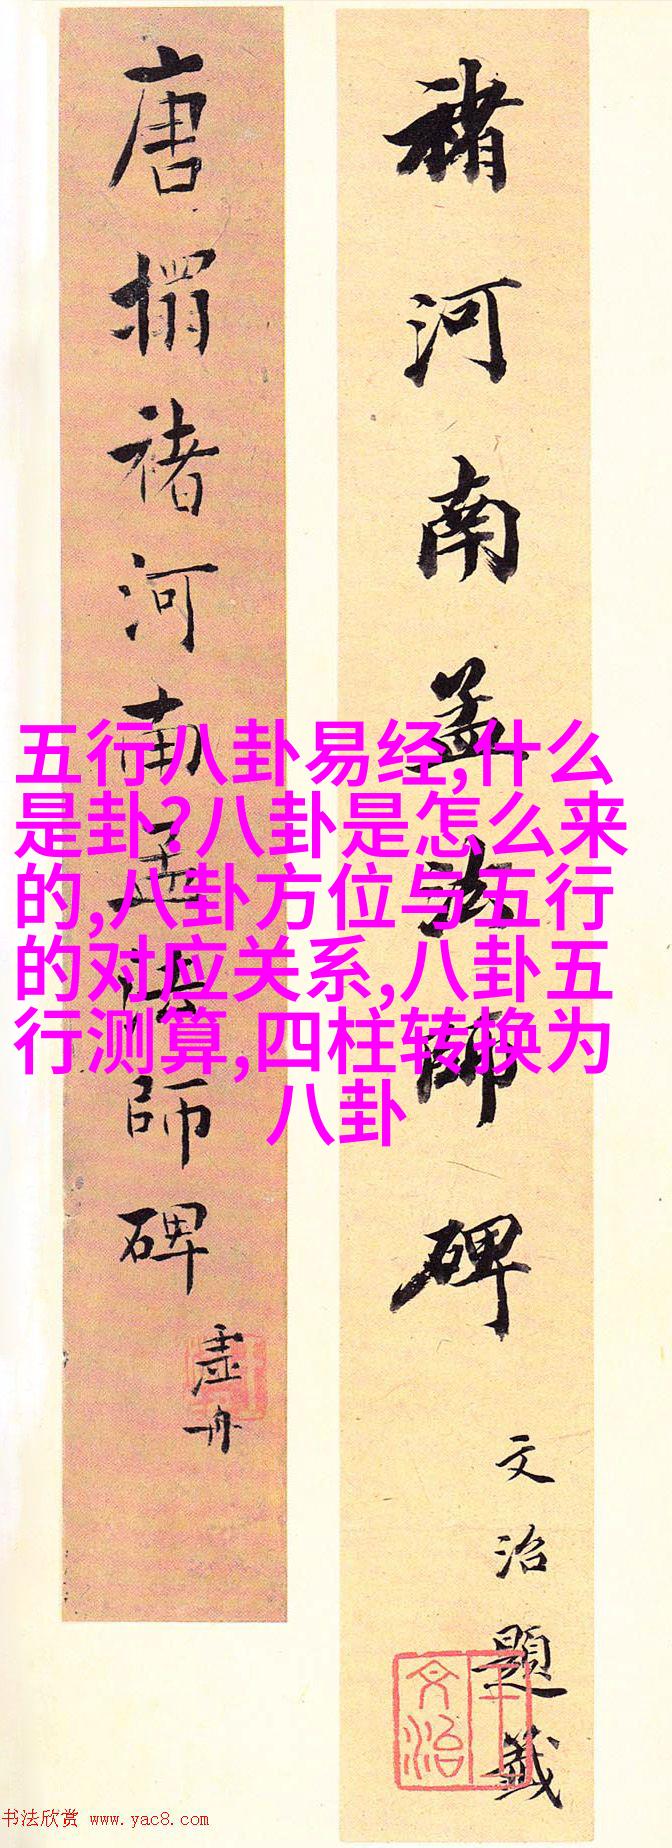 褚河南孟法師碑
文治題籤
王文治
唐搨褚河南孟法師碑
虛舟
五行八卦易经,什么
是卦?八卦是怎么来
的,八卦方位与五行
的对应关系,八卦五
行测算,四柱转换为
八卦
书法欣赏 www.yac8.com